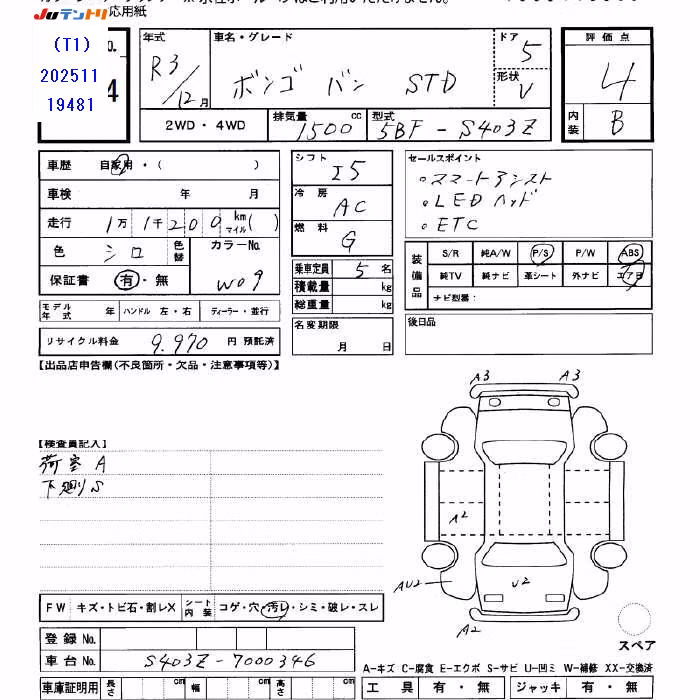 JUテントリ 応用紙
(T1)
202511
19481
No.
4
年式 R3/12月
車名・グレード ボンゴ バン STD
ドア 5
形状 V
評価点 4
内装 B
2WD・4WD
排気量 1500 cc
型式 5BF-S403Z
車歴 自家用・( )
車検 年 月
走行 1万 1千 200 km マイル( )
色 シロ 色替
カラーNo. W09
保証書 有・無
モデル年式 年 ハンドル 左・右 ディーラー・並行
リサイクル料金 9.970 円 預託済
シフト I5
冷房 AC
燃料 G
乗車定員 5 名
積載量 kg
総重量 kg
名変期限
月 日
セールスポイント
。スマートアシスト
。LEDヘッド
。ETC
装備品
S/R 純A/W P/S P/W ABS
純TV 純ナビ 革シート 外ナビ エアB
ナビ型番：
後日品
【出品店申告欄(不良箇所・欠品・注意事項等)】
【検査員記入】
荷室 A
下廻り S
A3 A3
A2
AU2 U2
A2
スペア
FW キズ・トビ石・割レX シート内装 コゲ・穴・汚レ・シミ・破レ・スレ
登録No.
車台No. S403Z-7000346
A-キズ C-腐食 E-エクボ S-サビ U-凹ミ W-補修 XX-交換済
車庫証明用 長さ cm 幅 cm 高さ cm
工具 有・無 ジャッキ 有・無